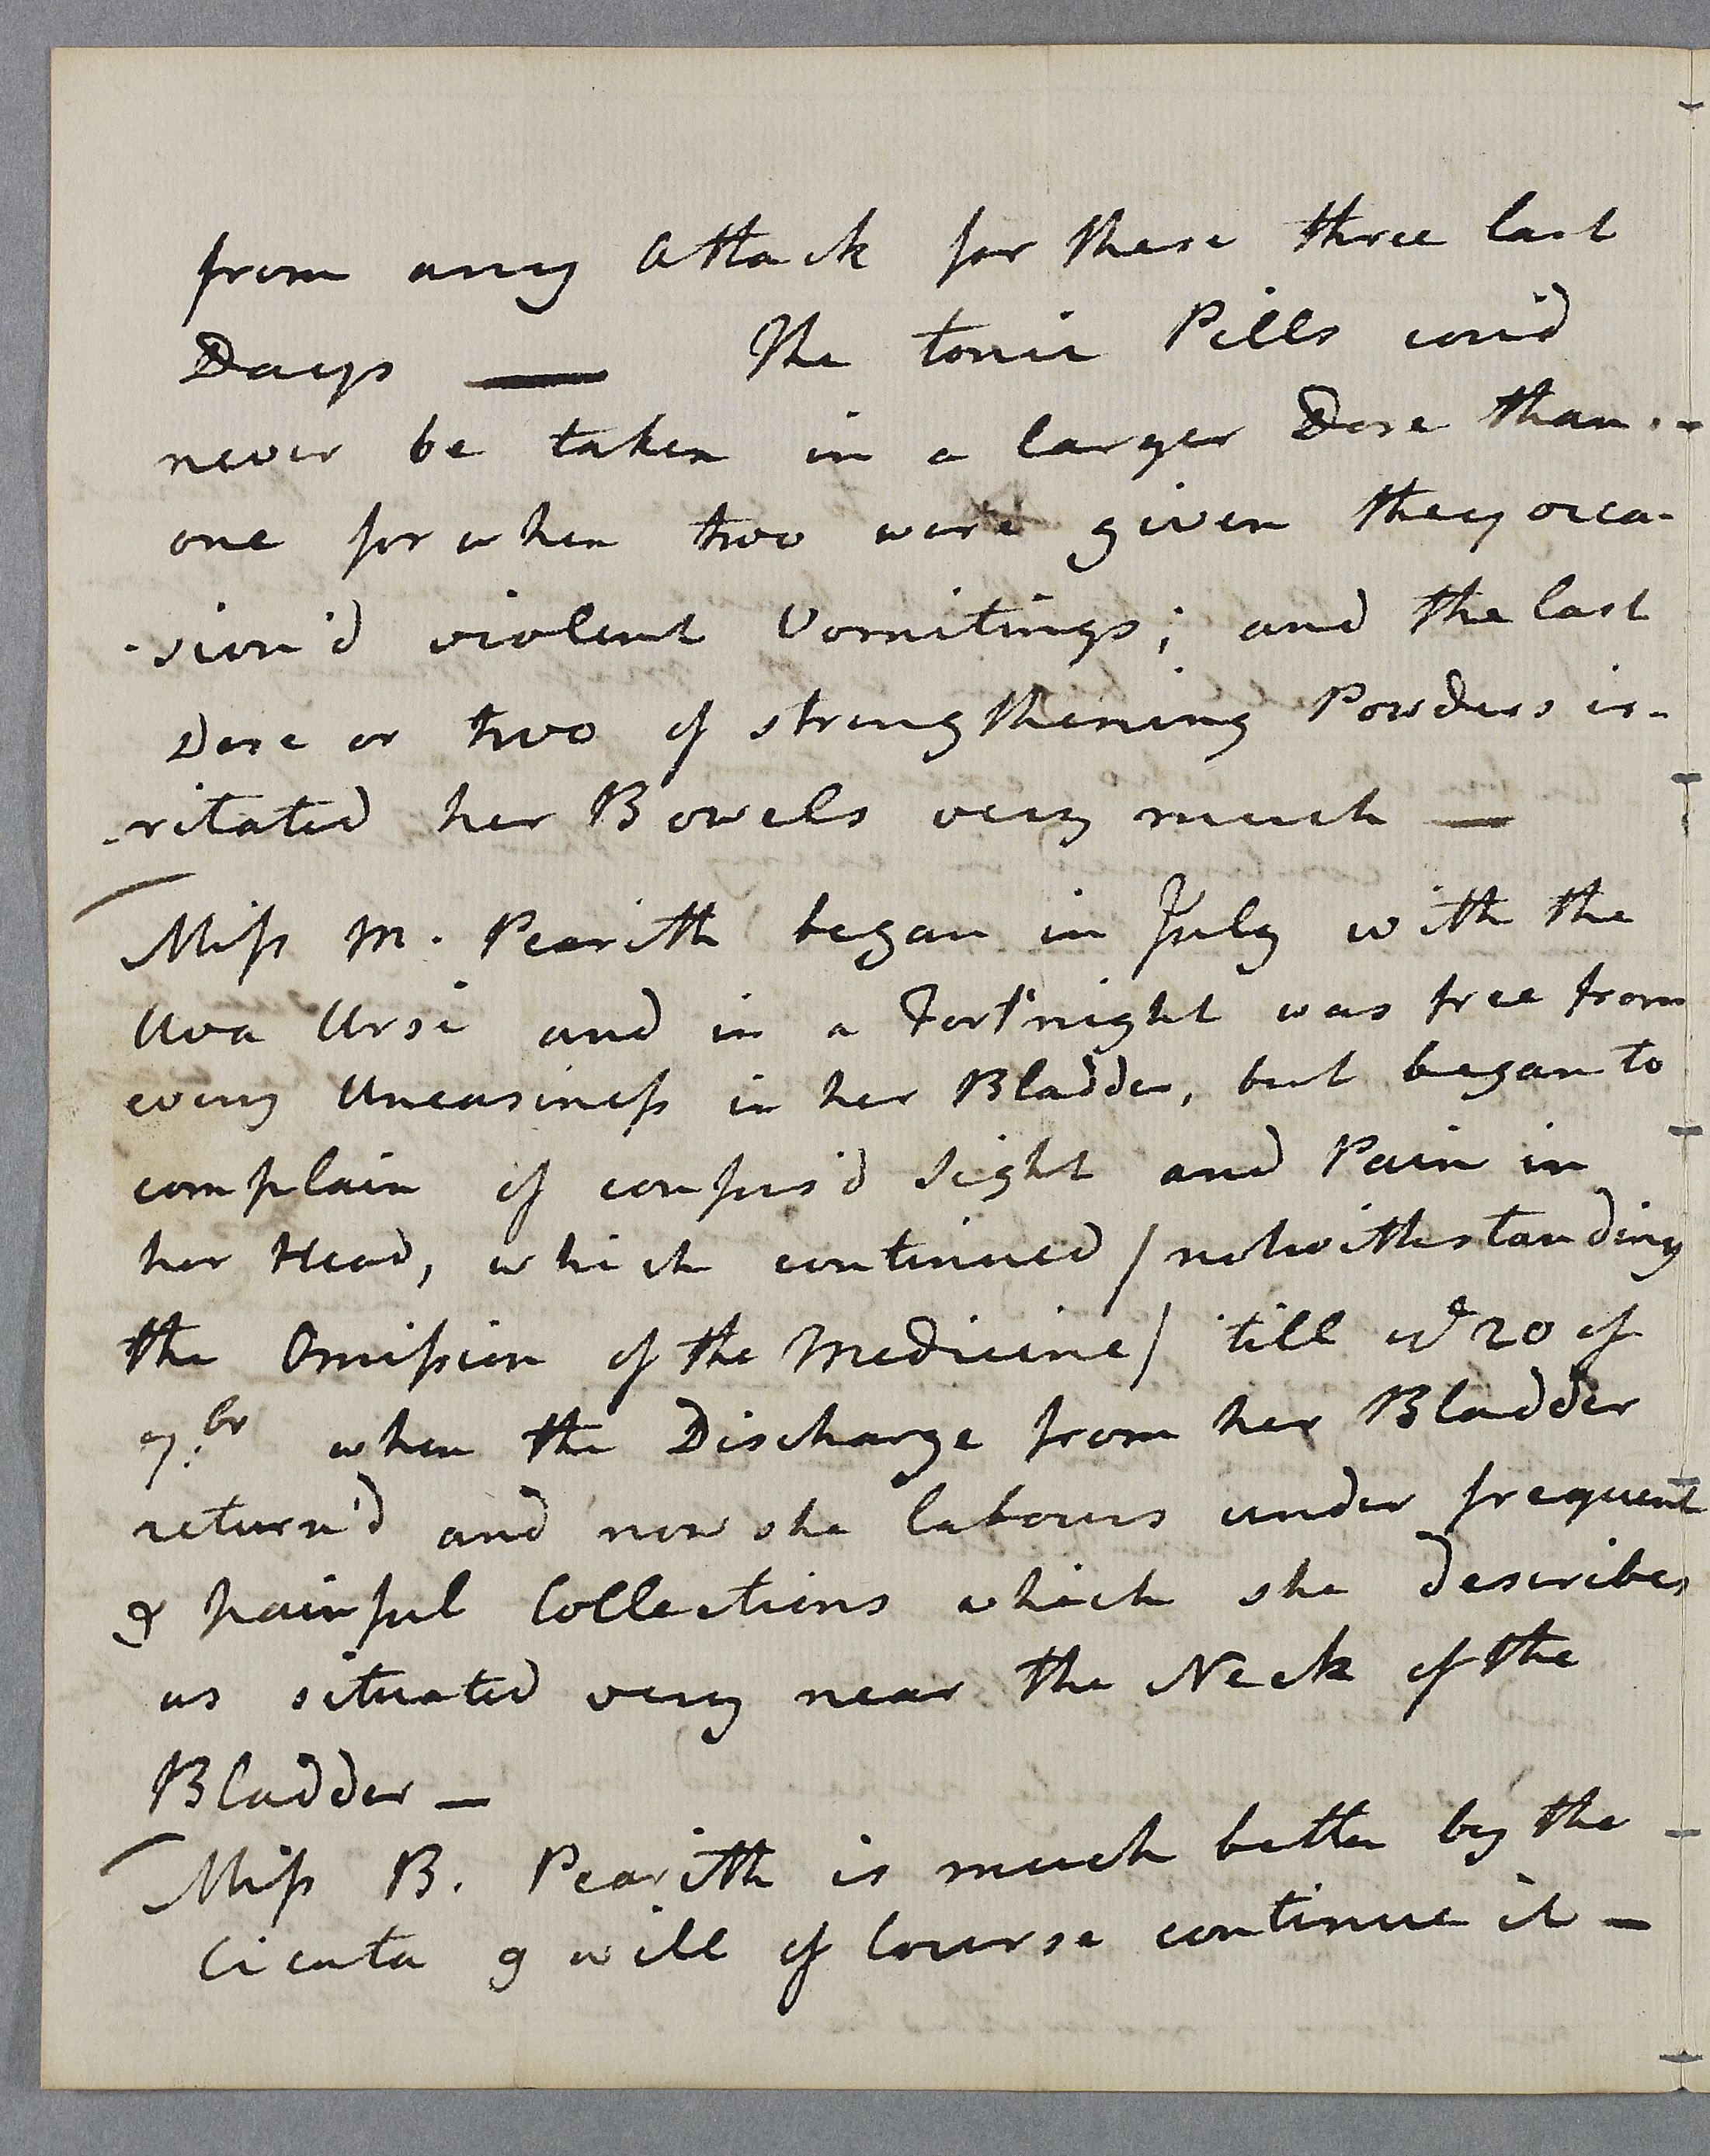 from any Attack for these three last
Days — The tonic Pills cou'd
never be taken in a larger Dose than
one for when two were given they occa-
-sion'd violent Vomitings; and the last
Dose or two of strengthening Powders ir-
-ritated her Bowels very much —
Miſs M. Pearith began in July with the
Uva Ursi and in a Fort'night was free from
every Uneasineſs in her Bladder, but began to
complain of confus'd Sight and Pain in
her Head, which continued / notwithstanding
the Omiſsion of the Medicine / 'till ye 20 of
7.br when the Discharge from her Bladder
return'd and now she labours under frequent
& painful Collections which she describes
as situated very near the Neck of the
Bladder —
Miſs B. Pearith is much better by the
Cicuta & will of Course continue it —